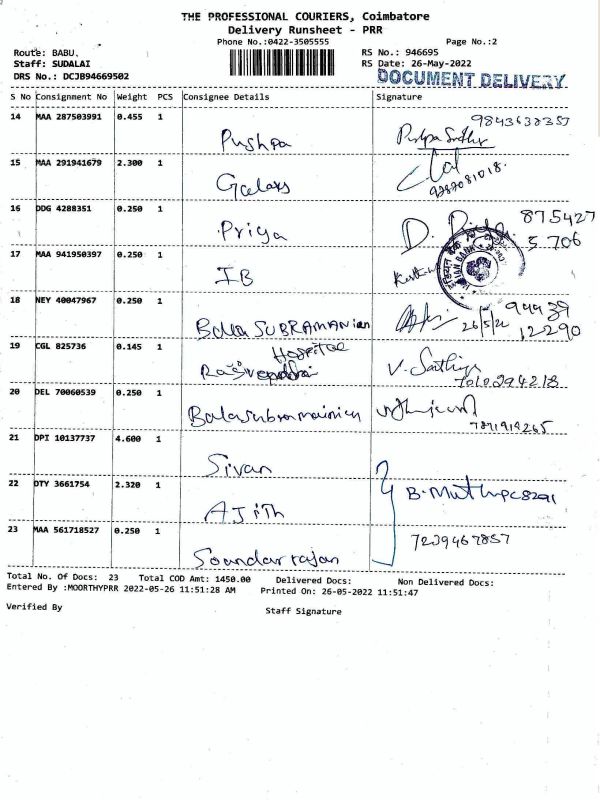 THE PROFESSIONAL COURIERS, Coimbatore
Delivery Runsheet - PRR
Phone No.:0422-3505555
Page No.:2
Route: BABU,
RS No.: 946695
Staff: SUDALAI
RS Date: 26-May-2022
DRS No.: DCJB94669502
DOCUMENT DELIVERY
S No Consignment No Weight PCS Consignee Details Signature
14 MAA 287503991 0.455 1 Pushpa
15 MAA 291941679 2.300 1
16 DDG 4288351 0.250 1 Priya D. 875427
5706
17 MAA 941950397 0.250 1 IB
INDIAN BANK
18 NEY 40047967 0.250 1 Bala SUBRAMANian 26/5/22 94439
12290
19 CGL 825736 0.145 1 Hospital V. Sathiya
7010294218
20 DEL 70060539 0.250 1 Balasubramainian
21 DPI 10137737 4.600 1 Sivan
22 DTY 3661754 2.320 1 AJith
23 MAA 561718527 0.250 1 Soundar rajan 7239467857
Total No. Of Docs: 23 Total COD Amt: 1450.00 Delivered Docs: Non Delivered Docs:
Entered By :MOORTHYPRR 2022-05-26 11:51:28 AM Printed On: 26-05-2022 11:51:47
Verified By Staff Signature